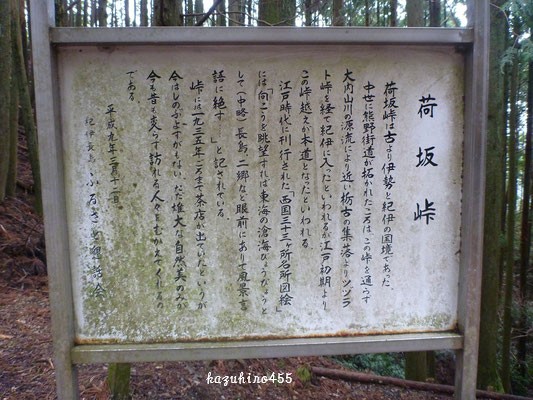 荷坂峠
荷坂峠は古より伊勢と紀伊の国境であった。
中世に熊野街道が拓かれたころは、この峠を通らず
大内山川の源流により近い栃古の集落よりツヅラ
ト峠を経て紀伊に入ったといわれるが江戸初期より
この峠越えが本道となったといわれる。
江戸時代に刊行された「西国三十三ヶ所名所図絵」
には「向こうを眺望すれば東海の滄海ひょうびょうと
して(中略)長島、二郷など眼前にありて風景言
語に絶す 」と記されている。
峠には一九三五年ごろまで茶店が出ていたというが
今はしのぶよすがもない。ただ雄大な自然美のみが
今も昔も変らず訪れる人々をむかえてくれるの
である。
平成九年三月十一日
紀伊長島・ふるさと懇話会
kazuhiro455